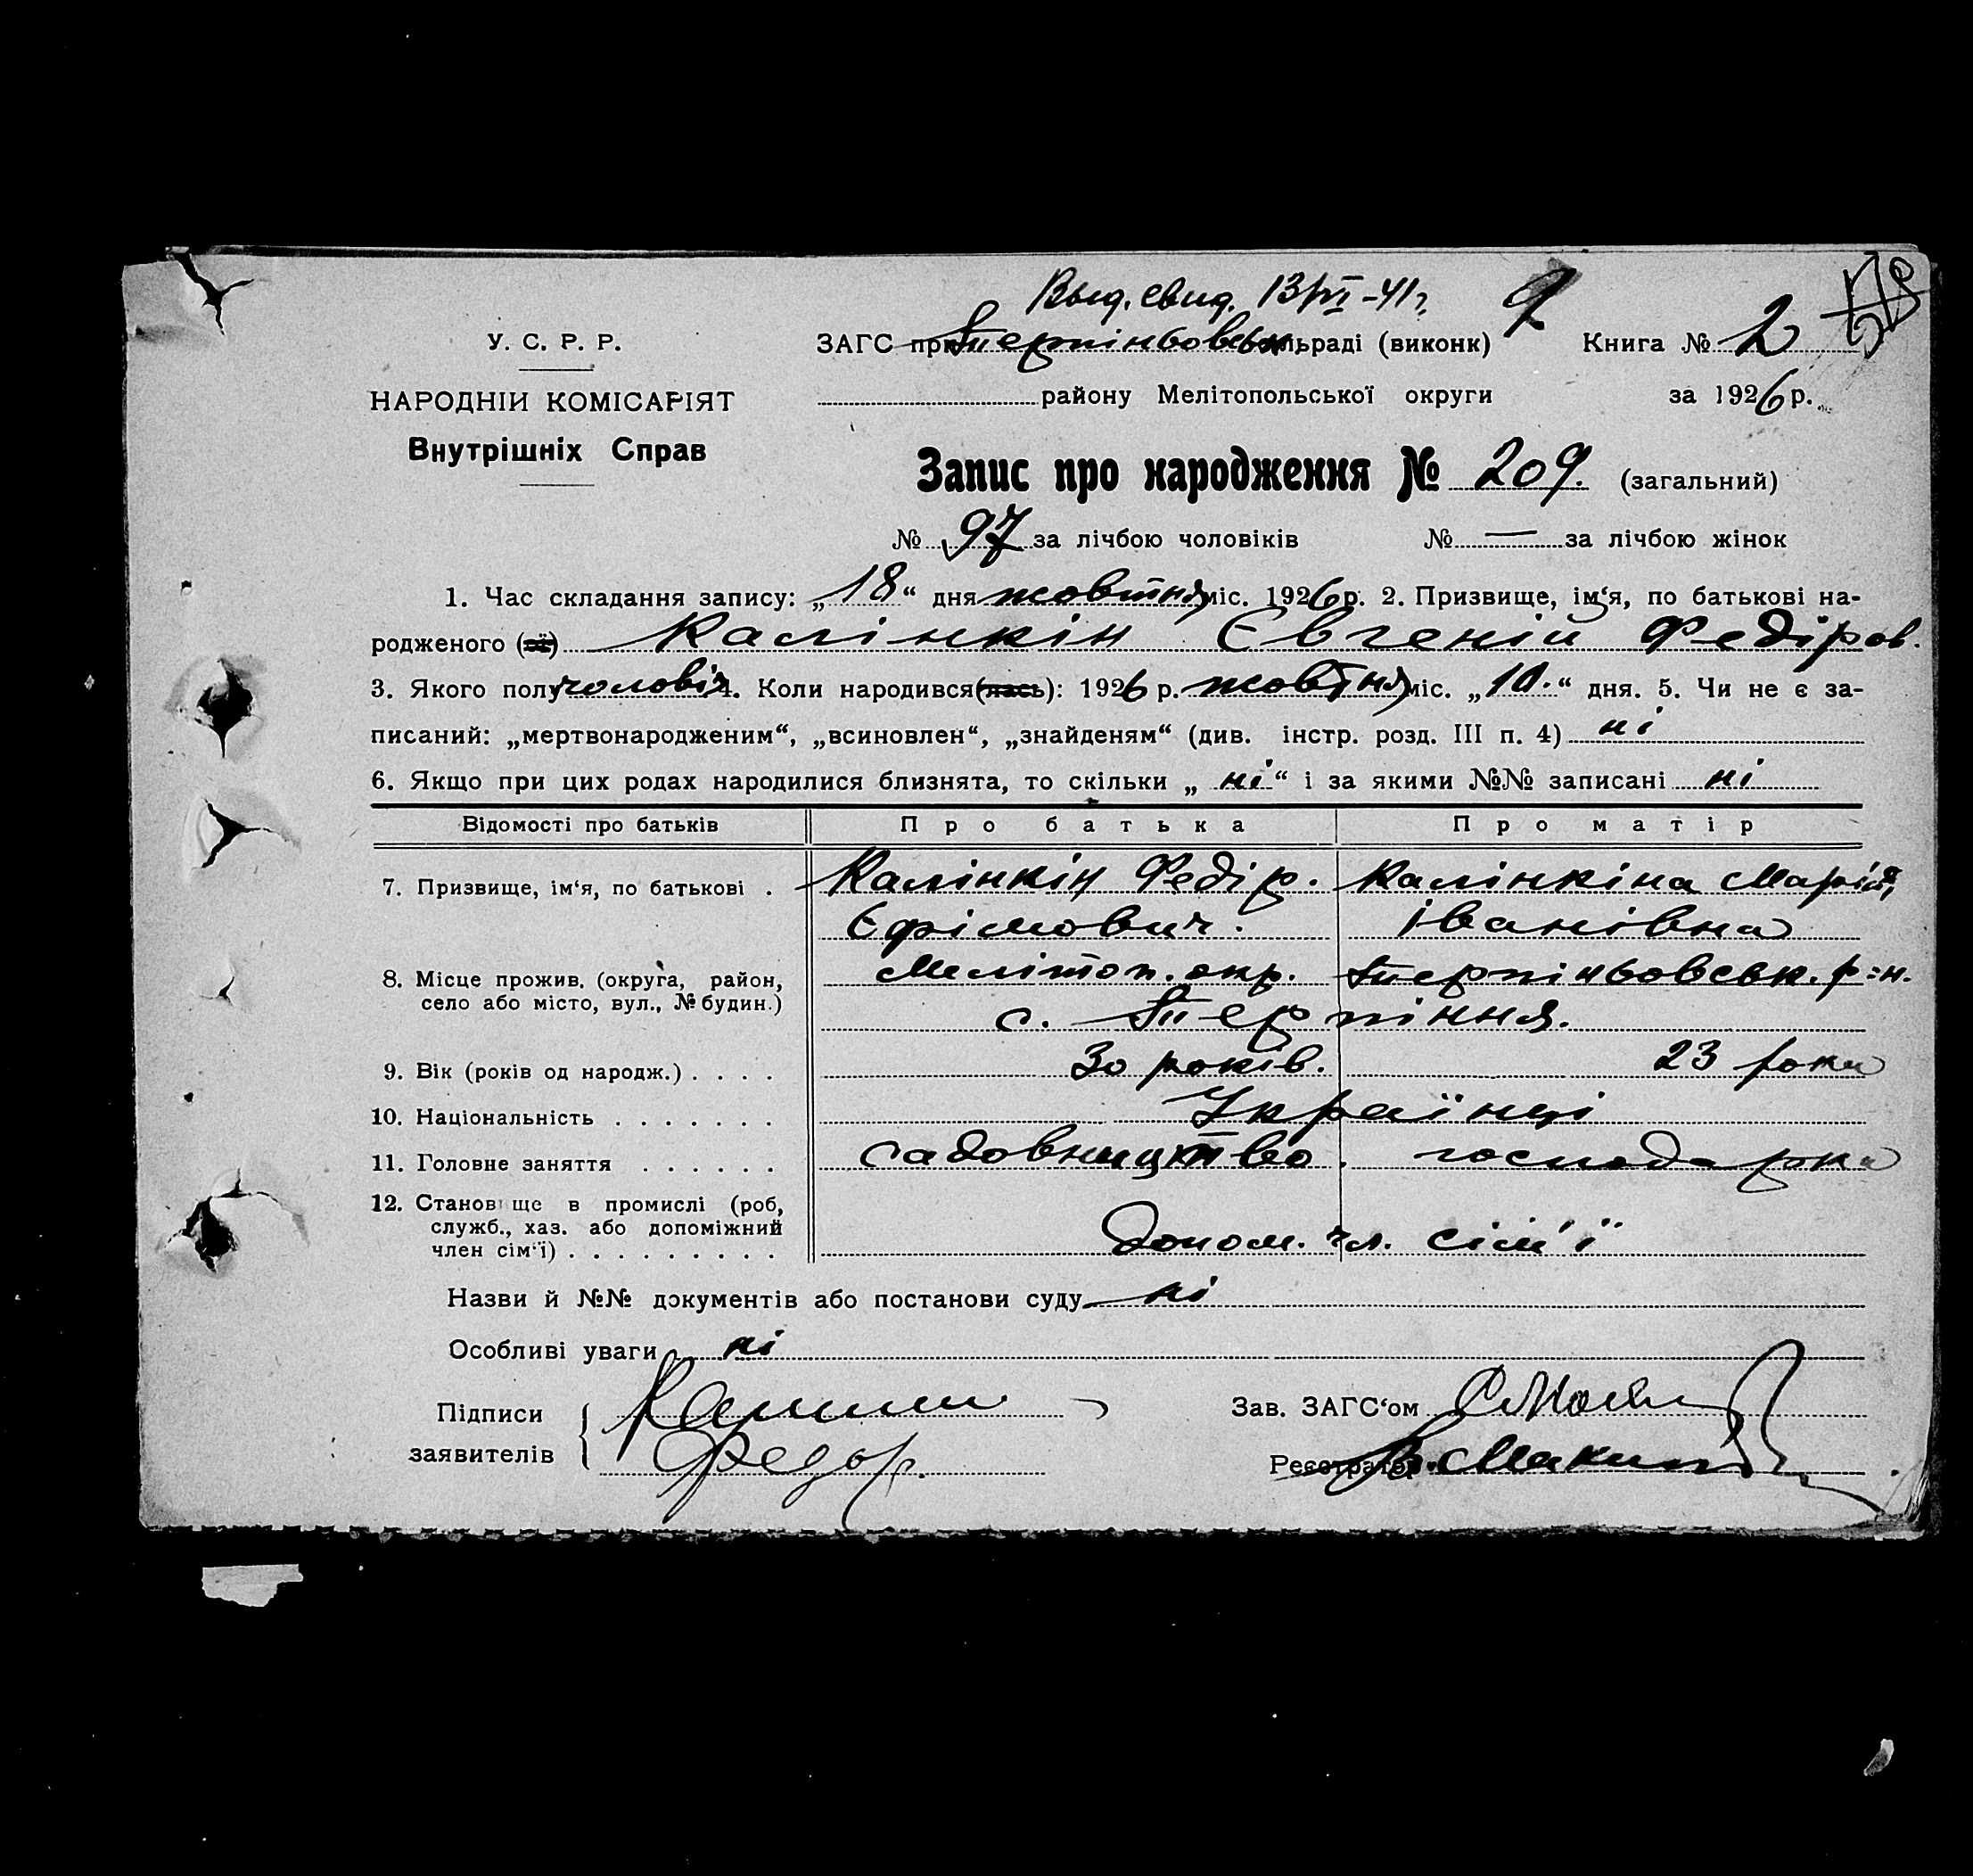 Выд. свид. 13/VI-41 г.
У. С. Р. Р.
ЗАГС при Терпіньовськ. сільраді (виконк)
Книга № 2
НАРОДНІЙ КОМІСАРІЯТ
району Мелітопольської округи
за 1926 р.
Внутрішніх Справ
Запис про народження № 209. (загальний)
№ 97 за лічбою чоловіків № — за лічбою жінок
1. Час складання запису: „18“ дня жовтня міс. 1926 р. 2. Призвище, ім‘я, по батькові на-
родженого (ої) Калінкін Євгеній Федіров.
3. Якого полу чоловіч 4. Коли народився (лась): 1926 р. жовтня міс. „10.“ дня. 5. Чи не є за-
писаний: „мертвонародженим“, „всиновлен“, „знайденям“ (див. інстр. розд. III п. 4) ні
6. Якщо при цих родах народилися близнята, то скільки „ні“ і за якими №№ записані ні
Відомості про батьків Про батька Про матір
7. Призвище, ім‘я, по батькові . Калінкін Федір. Калінкіна Марія
Єфімович. Іванівна
8. Місце прожив. (округа, район, Меліпоп. окр. Терпіньовськ. р-н.
село або місто, вул., № будин.) с. Терпіння.
9. Вік (років од народж.) . . . . 30 років. 23 роки
10. Національність . . . . . . . Українці
11. Головне заняття . . . . . . садовництво. господарка
12. Становище в промислі (роб,
служб., хаз. або допоміжний
член сім‘ї) . . . . . . . . . допом. чл. сім'ї
Назви й №№ документів або постанови суду ні
Особливі уваги ні
Підписи
Зав. ЗАГС‘ом
заявителів Федор.
Реєстратор